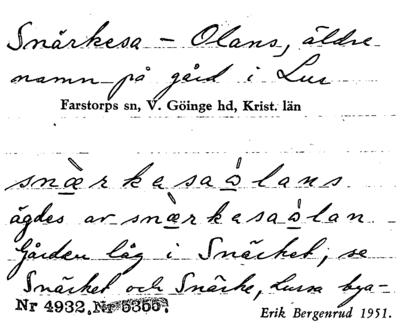 Snärkesa – Olans, äldre
namn på gård i Lur
Farstorps sn, V. Göinge hd, Krist. län
snæ̀rkasaə̀lans
ägdes av snæ̀rkasaə̀lan
Gården låg i Snärket, se
Snärket och Snärke, Lursa bya-
Nr 4932, Nr 5355.
Erik Bergenrud 1951.